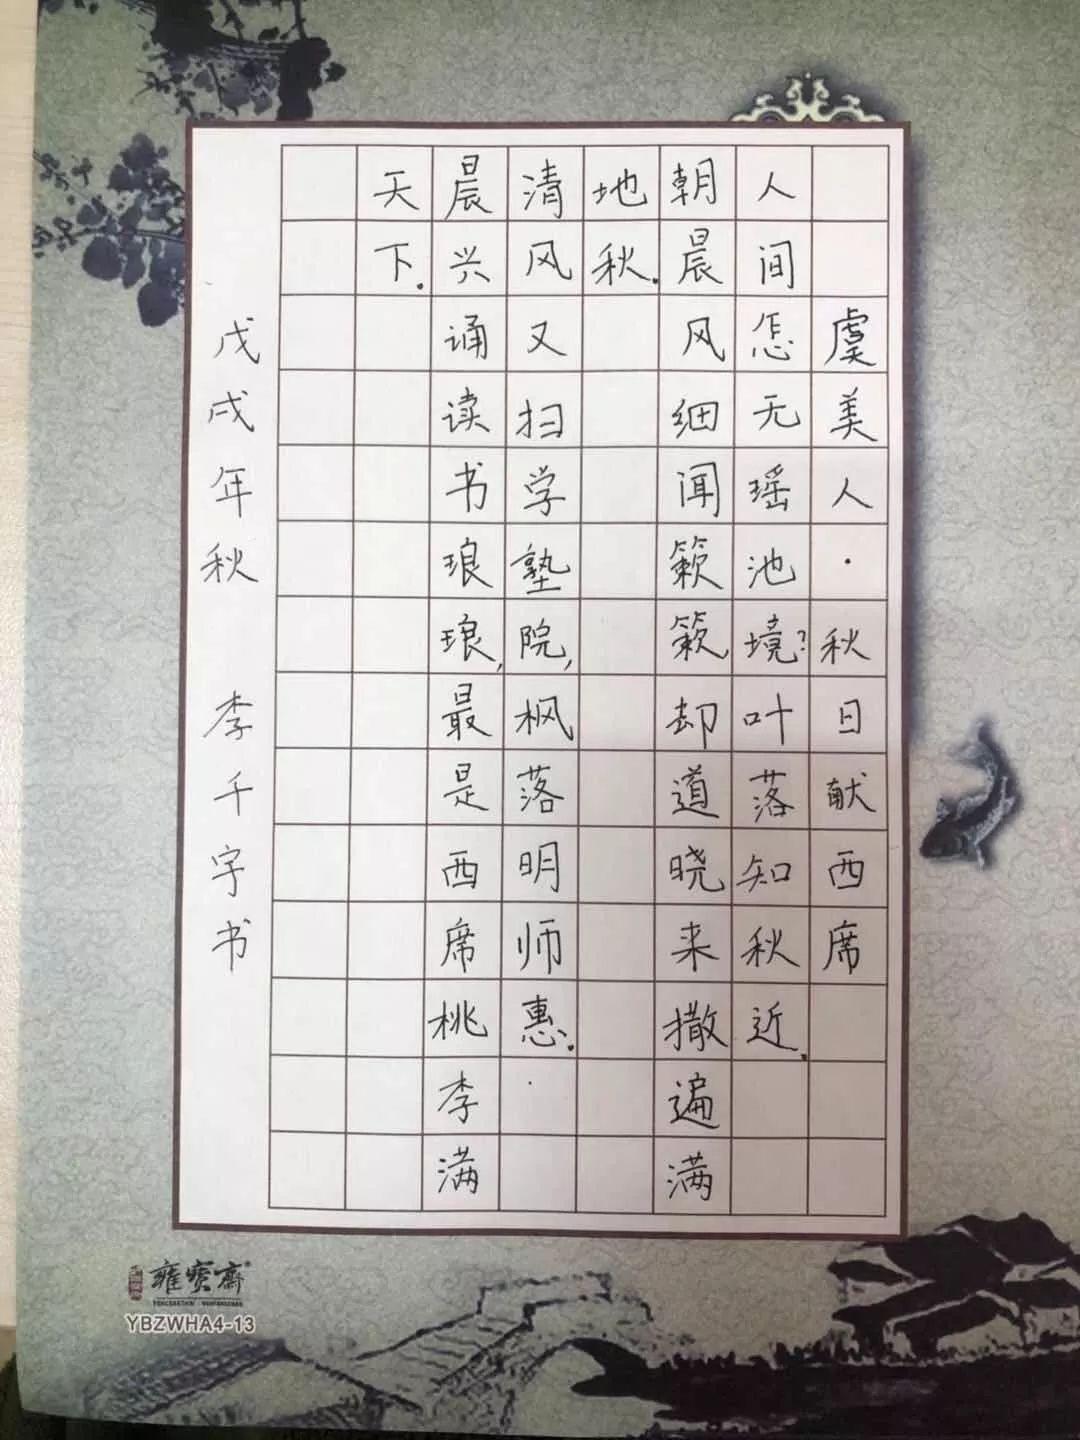 虞美人·秋日献西席
人间怎无瑶池境?叶落知秋近.
朝晨风细闻簌簌,却道晓来撒遍满
地秋.
清风又扫学塾院,枫落明师惠.
晨兴诵读书琅琅,最是西席桃李满
天下.
戊戌年秋 李千字书
雍宝斋
YBZWHA4-13